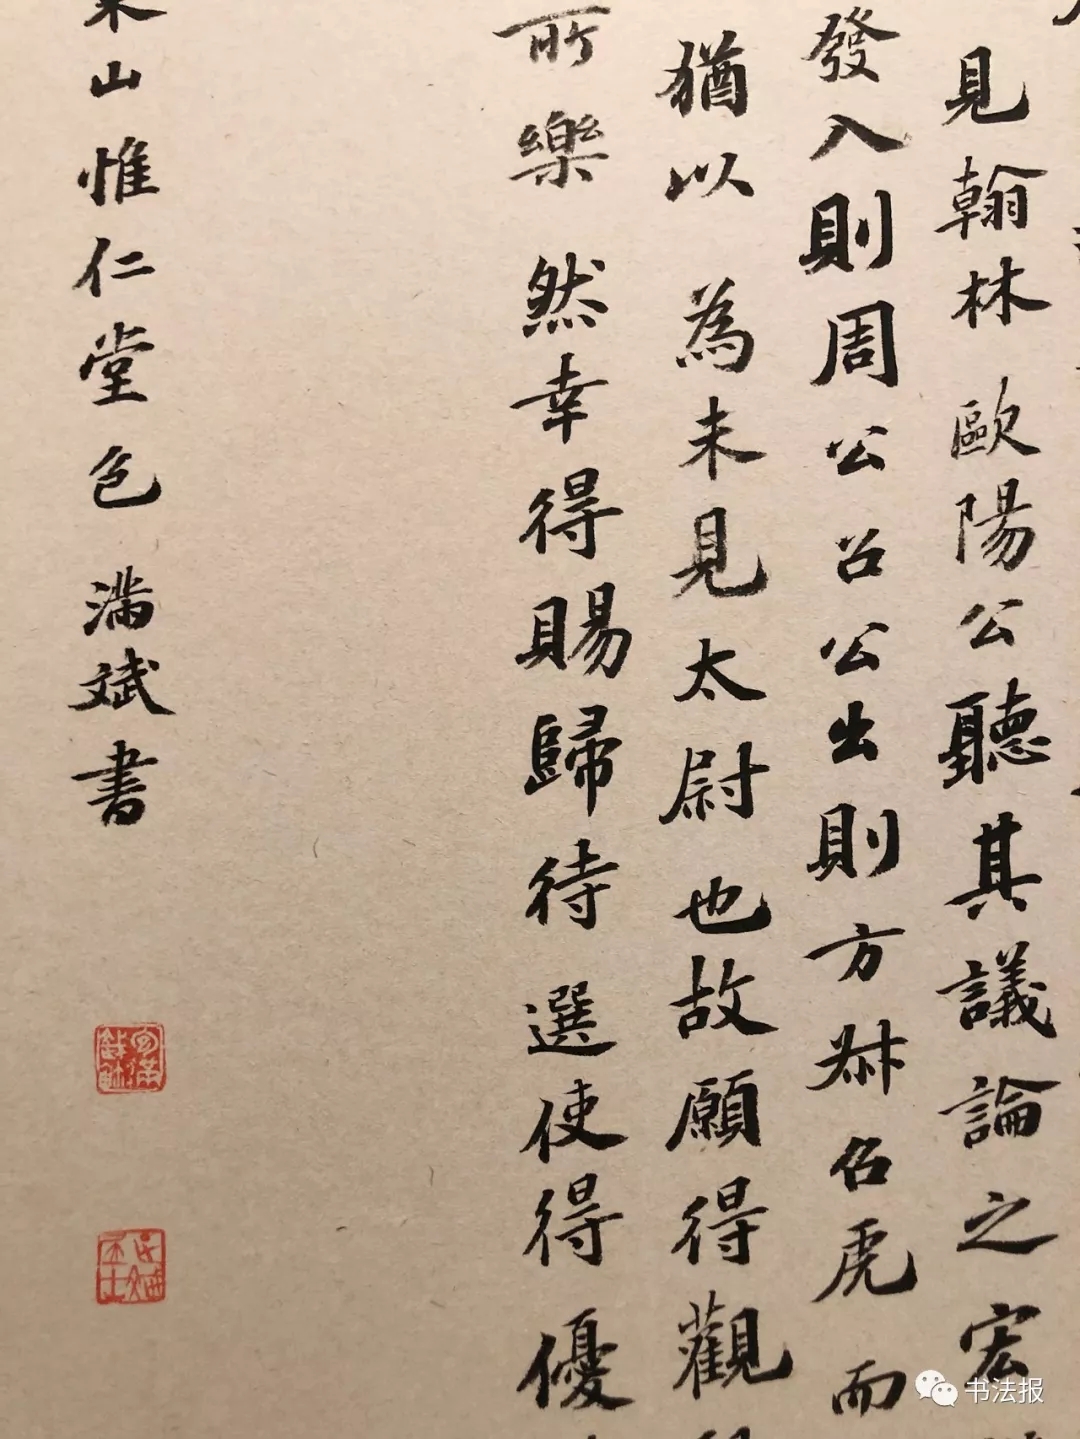 見翰林歐陽公聽其議論之宏
發入則周公召公出則方叔召虎而
猶以為未見太尉也故願得觀
所樂然幸得賜歸待選使得優
山惟仁堂色滿斌書
书法报